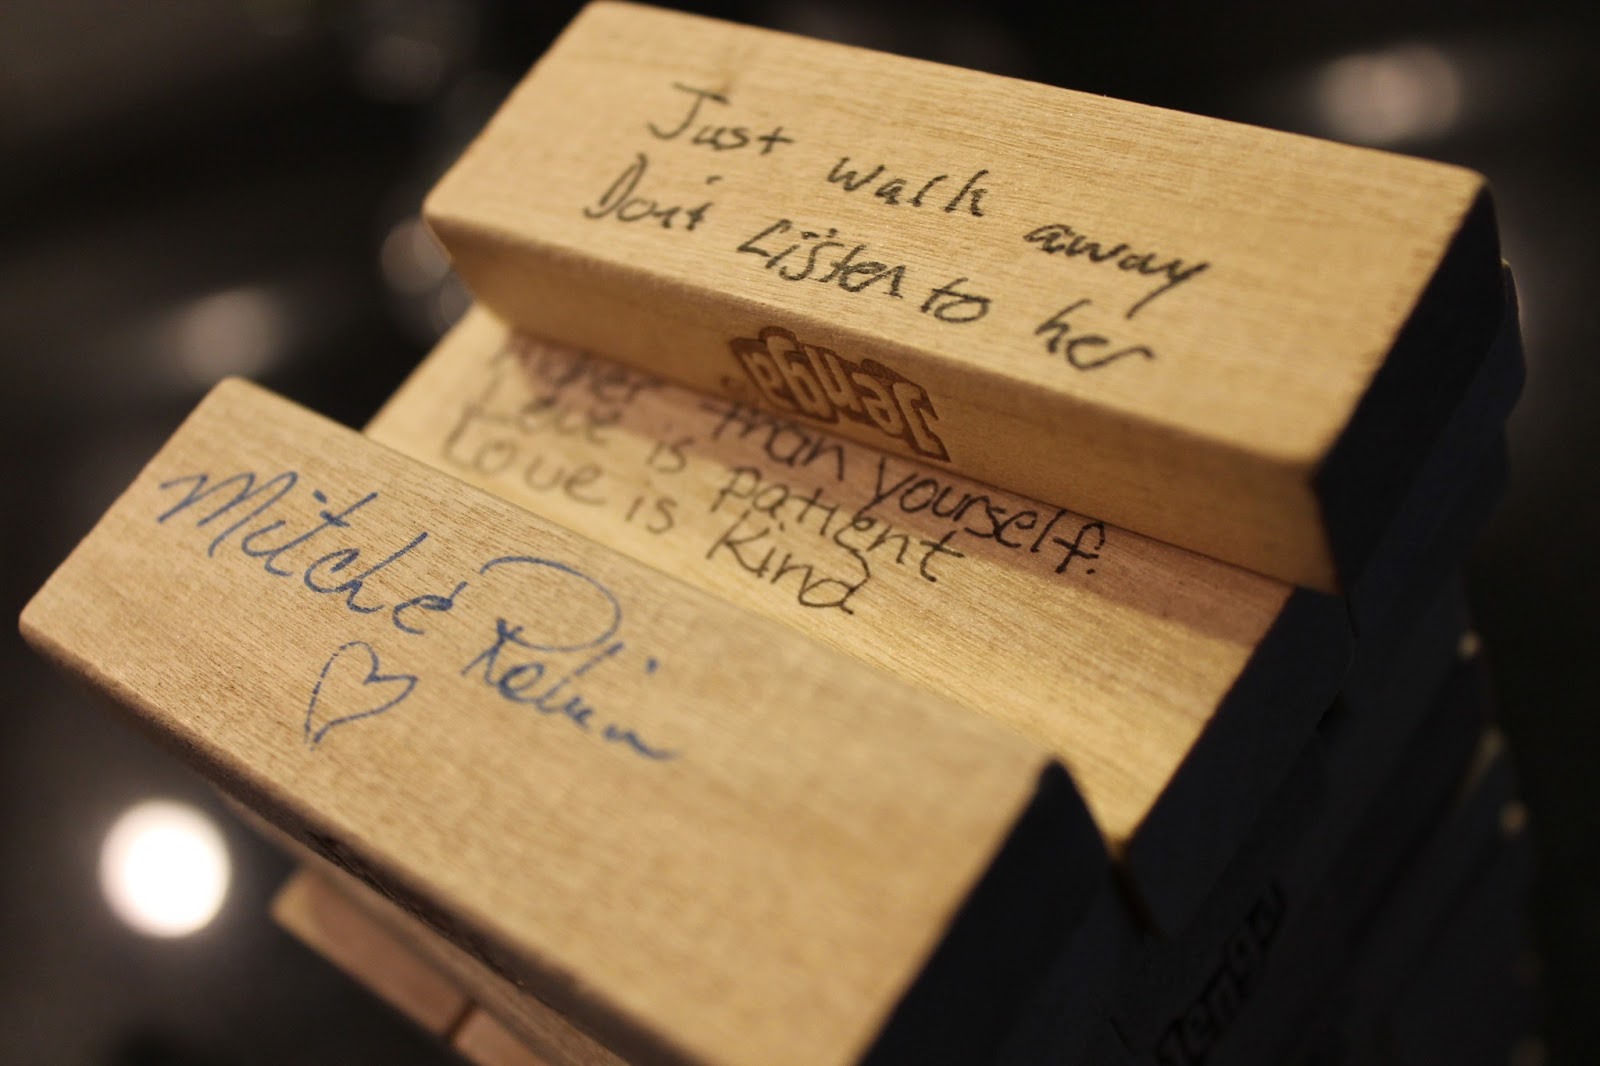 Just walk away
Don't Listen to her
Jenga
Higher than yourself.
Love is patient
Love is kind
Mitch &
Robin
Jenga